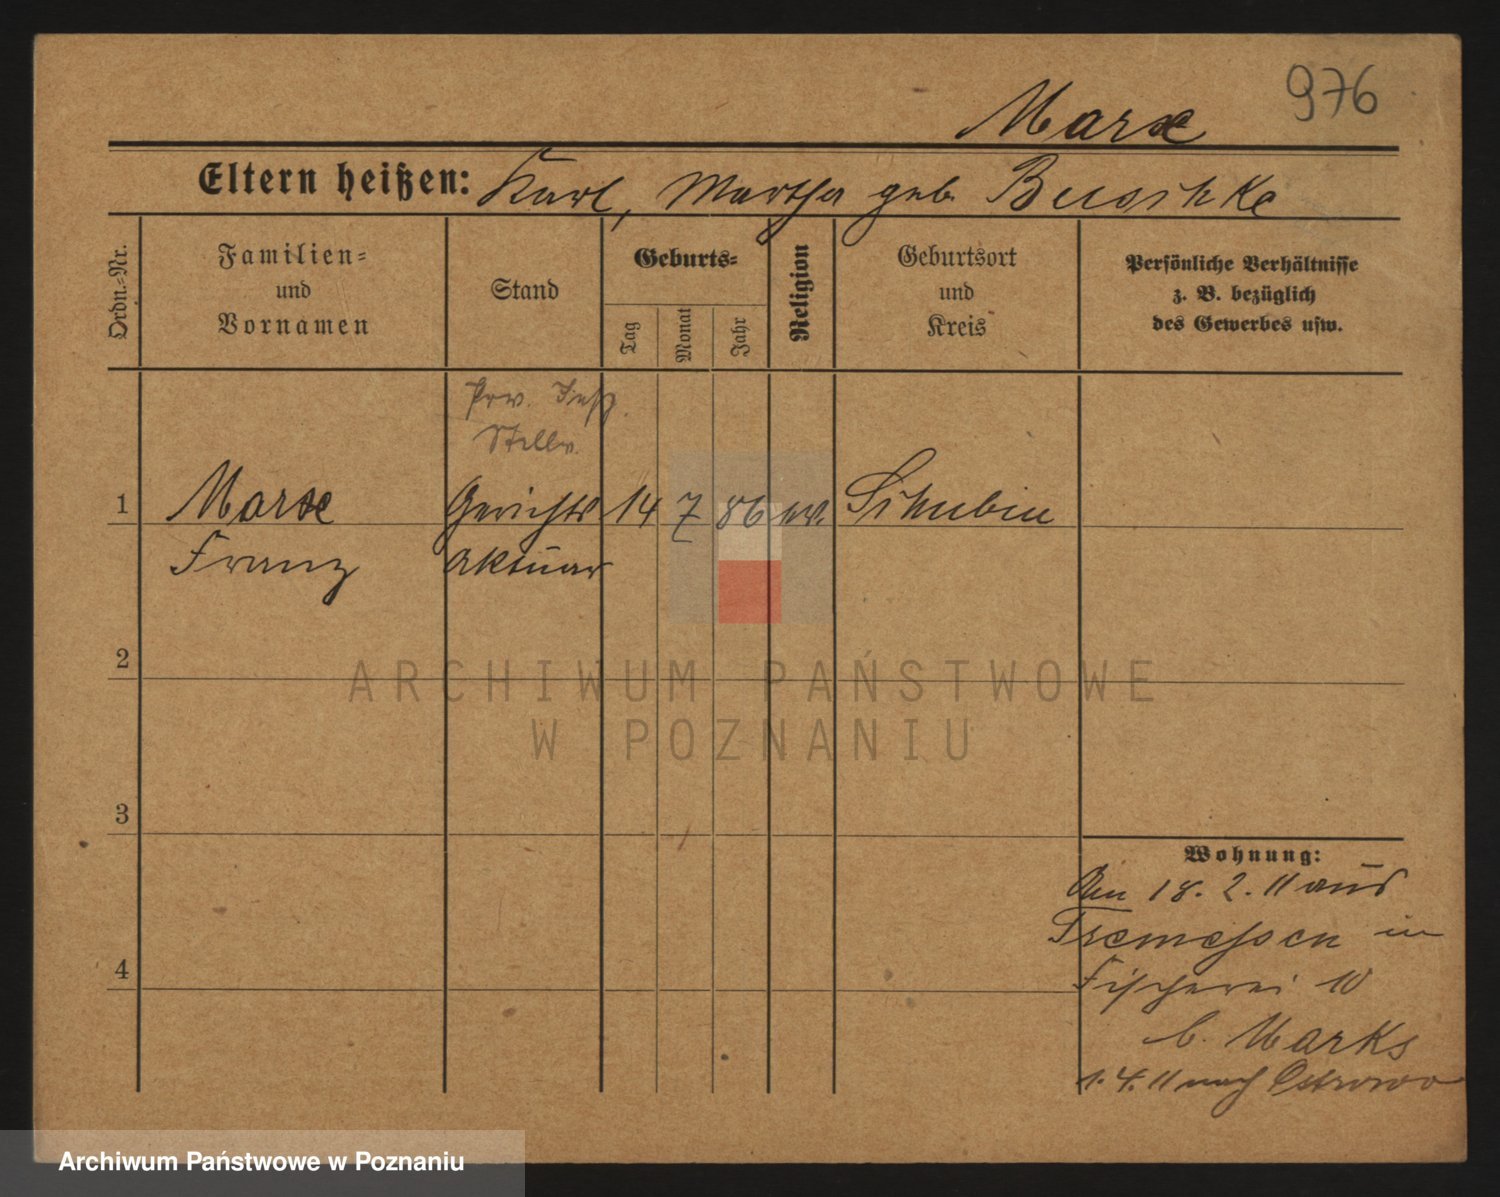 976
Marx
Eltern heißen: Karl, Martha geb. Buschke
Ordn.-Nr.
Familien-
und
Vornamen
Stand
Geburts-
Tag
Monat
Jahr
Religion
Geburtsort
und
Kreis
Persönliche Verhältnisse
z. B. bezüglich
des Gewerbes usw.
Stellv.
1 Marx Gerichts 14 7 86 ev. Schubin
Franz Aktuar
2
3
4
Wohnung:
Am 18. 2. 11 aus
Tremessen in
Fischerei 10
b. Marks
1. 4. 11 nach Ostrowo
ARCHIWUM PAŃSTWOWE
W POZNANIU
Archiwum Państwowe w Poznaniu